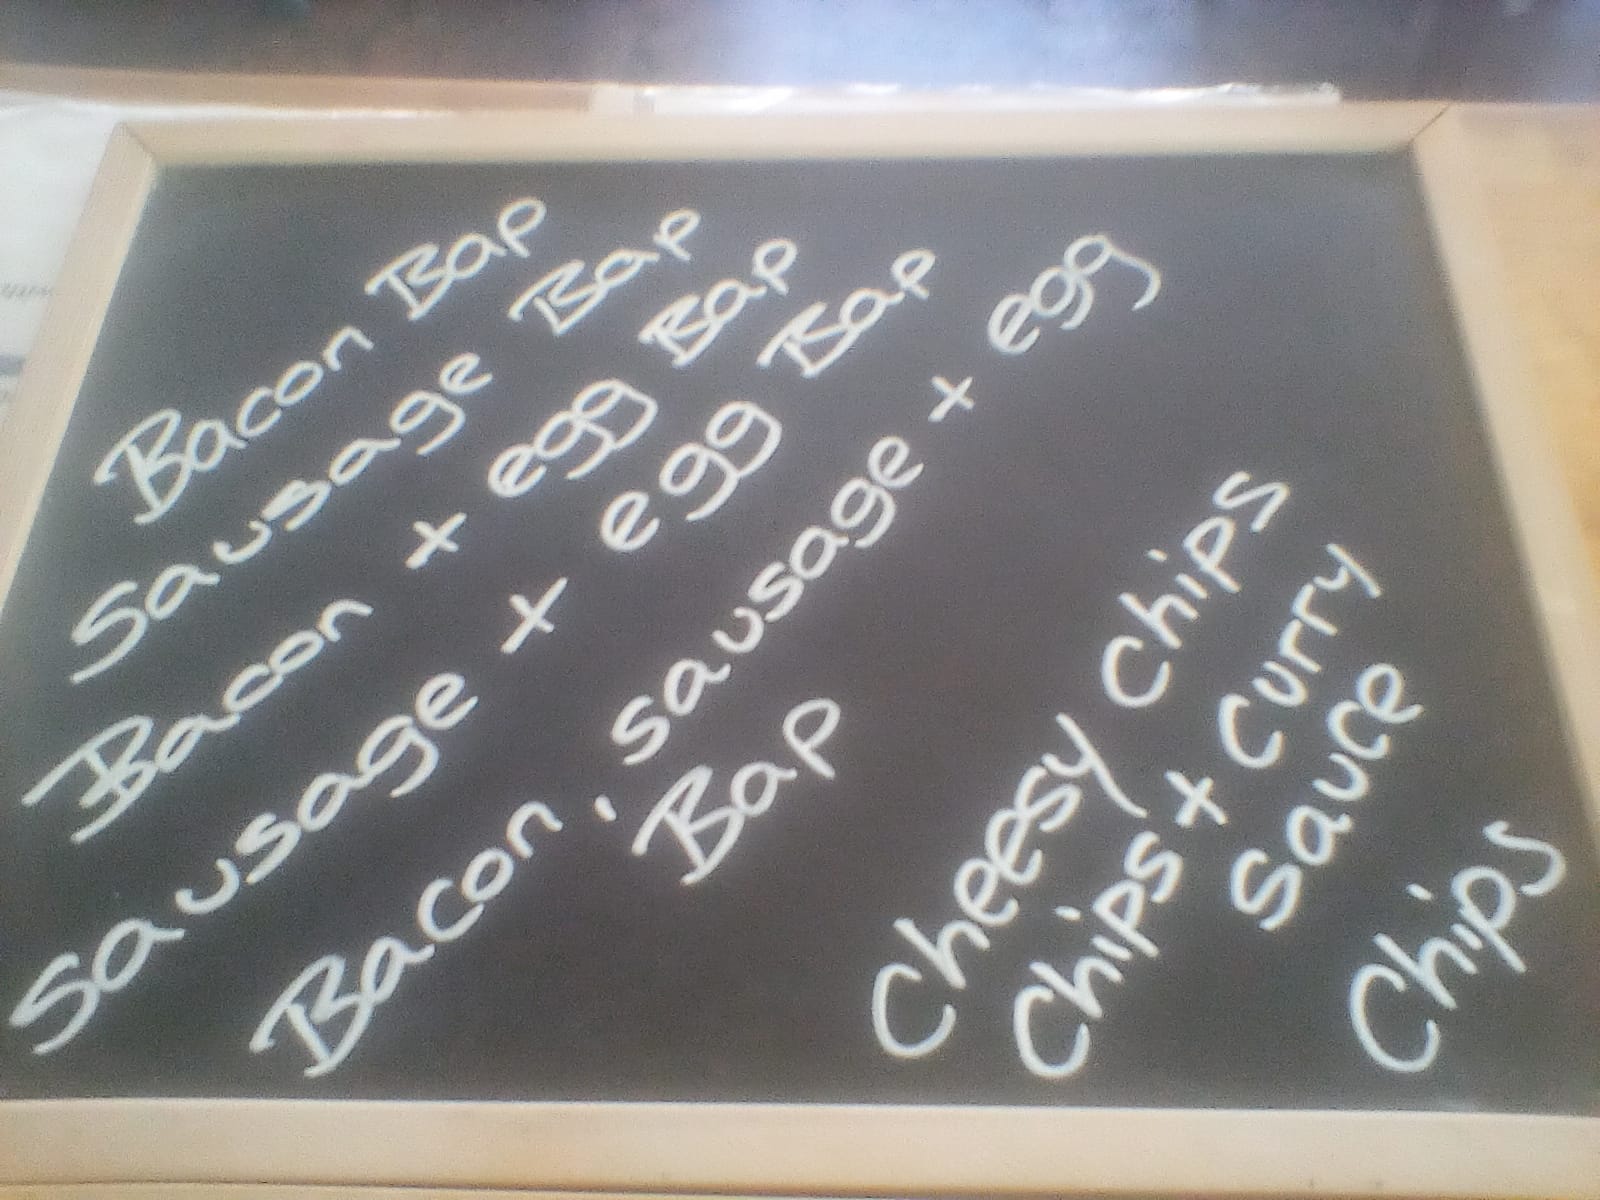 Bacon Bap
Sausage Bap
Bacon + egg Bap
Sausage + egg Bap
Bacon, sausage + egg
Bap
Cheesy Chips
Chips + Curry
Sauce
Chips